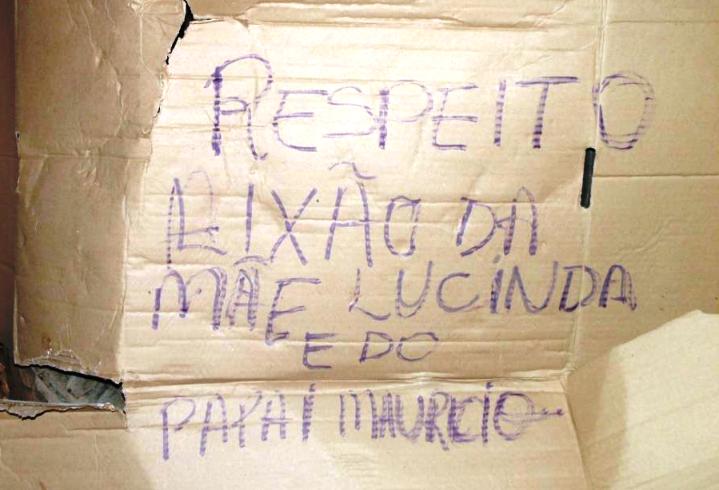 RESPEITO
LIXÃO DA
MÃE LUCINDA
E DO
PAPAI MAURICIO